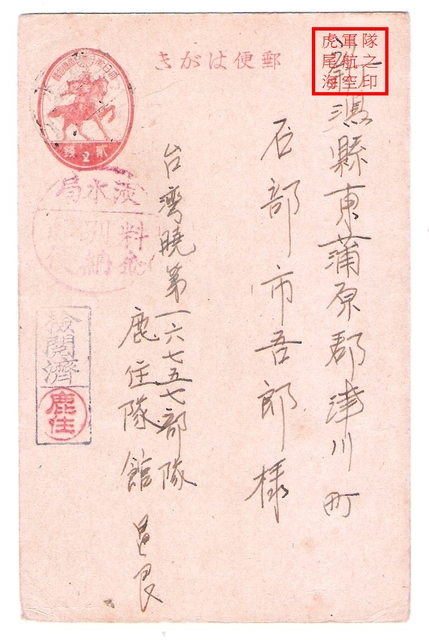 郵便はがき
虎尾海
軍航空
隊之印
新潟縣東蒲原郡津川町
石部市吾郎様
台湾暁第一六七五七部隊
鹿住隊館
淡水局
料金
別納
檢閲濟
鹿住